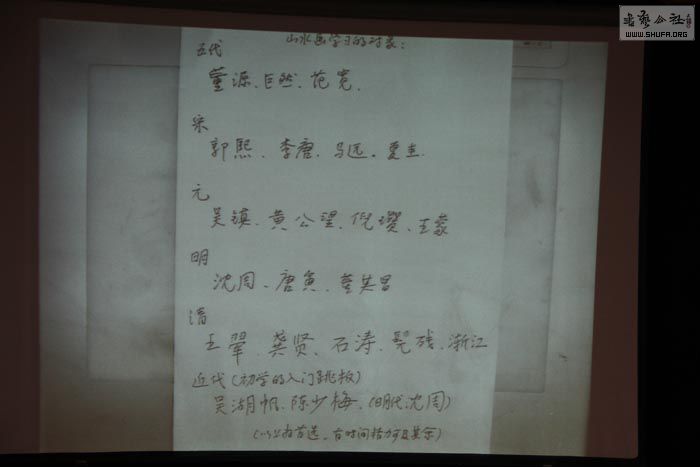 书艺公社
WWW.SHUFA.ORG
山水画学习的对象：
五代
董源、巨然、范宽、
宋
郭熙、李唐、马远、夏圭
元
吴镇、黄公望、倪瓒、王蒙
明
沈周、唐寅、董其昌
清
王翚、龚贤、石涛、髡残、渐江
近代（初学的入门跳板）
吴湖帆、陈少梅、（明代沈周）
（以上为首选，有时间精力可且其余）